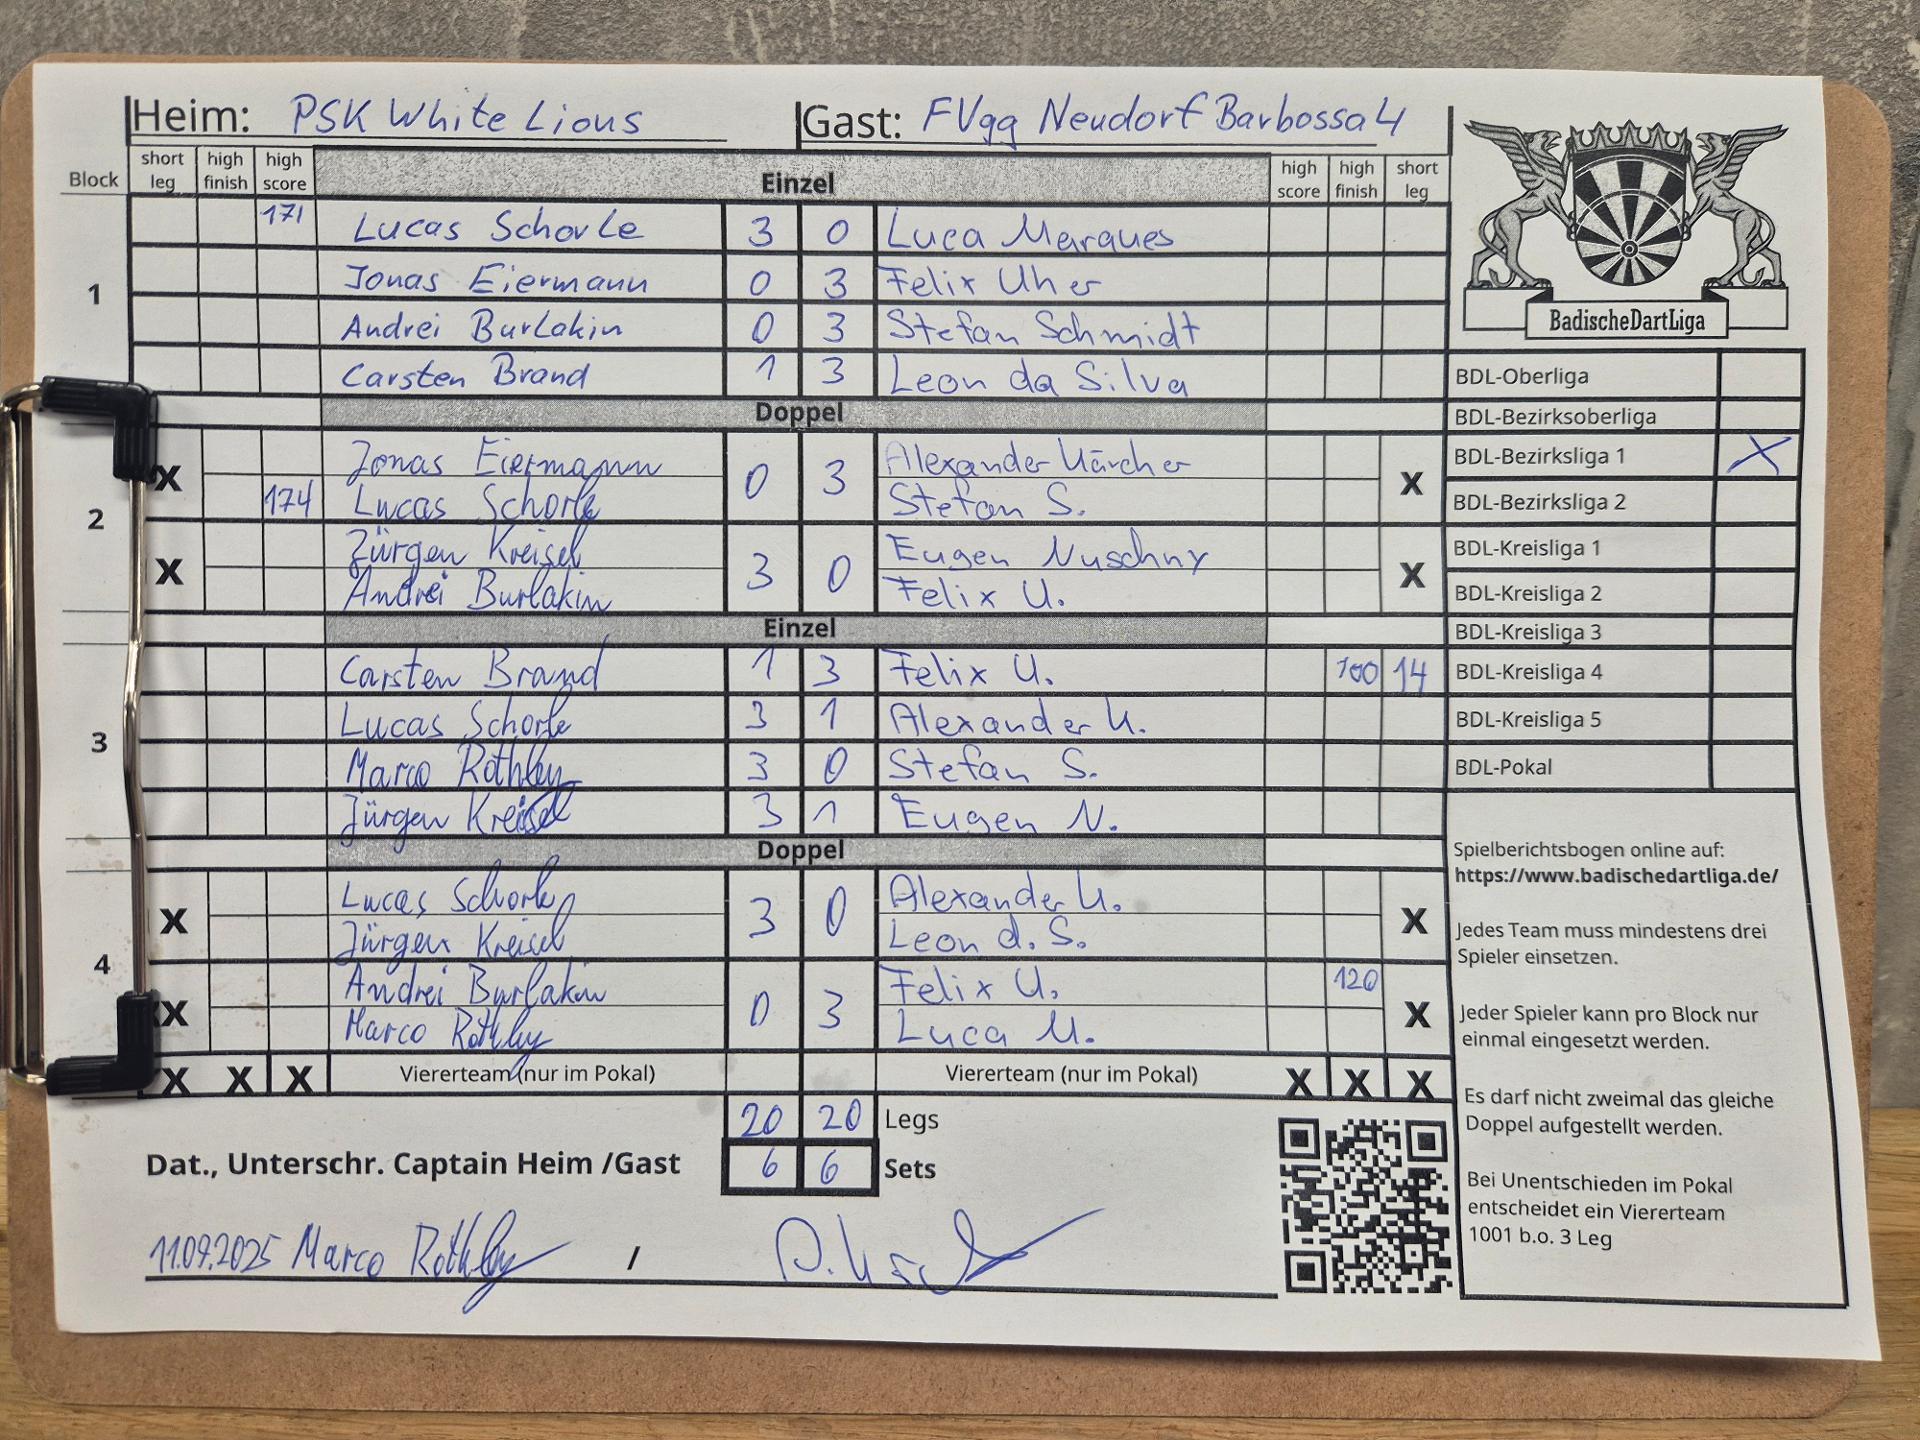 Heim: PSK White Lions Gast: FVgg Neudorf Barbossa 4
Block short leg high finish high score Einzel high score high finish short leg
1
171 Lucas Schorle 3 0 Luca Marques
Jonas Eiermann 0 3 Felix Uher
Andrei Burlakin 0 3 Stefan Schmidt
Carsten Brand 1 3 Leon da Silva
Doppel
2
X Jonas Eiermann 0 3 Alexander Kärcher X
174 Lucas Schorle Stefan S.
X Jürgen Kreisel 3 0 Eugen Nuschny X
Andrei Burlakin Felix U.
Einzel
3
Carsten Brand 1 3 Felix U. 100 14
Lucas Schorle 3 1 Alexander K.
Marco Rothley 3 0 Stefan S.
Jürgen Kreisel 3 1 Eugen N.
Doppel
4
X Lucas Schorle 3 0 Alexander K. X
Jürgen Kreisel Leon d. S.
X Andrei Burlakin 0 3 Felix U. 120 X
Marco Rothley Luca M.
X X X Viererteam (nur im Pokal) Viererteam (nur im Pokal) X X X
20 20 Legs
Dat., Unterschr. Captain Heim /Gast 6 6 Sets
11.09.2025 Marco Rothley /
BadischeDartLiga
BDL-Oberliga
BDL-Bezirksoberliga
BDL-Bezirksliga 1 X
BDL-Bezirksliga 2
BDL-Kreisliga 1
BDL-Kreisliga 2
BDL-Kreisliga 3
BDL-Kreisliga 4
BDL-Kreisliga 5
BDL-Pokal
Spielberichtsbogen online auf:
https://www.badischedartliga.de/
Jedes Team muss mindestens drei
Spieler einsetzen.
Jeder Spieler kann pro Block nur
einmal eingesetzt werden.
Es darf nicht zweimal das gleiche
Doppel aufgestellt werden.
Bei Unentschieden im Pokal
entscheidet ein Viererteam
1001 b.o. 3 Leg